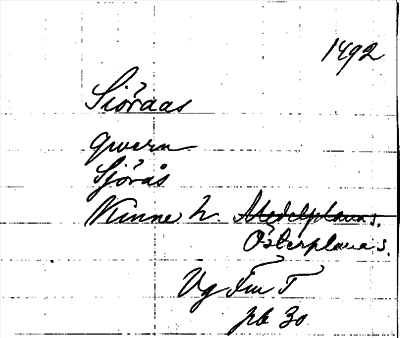 1492
Siöraas
qwern
Sjörås
Kinne h. Medelplana s.
Österplana s.
Vg Fm T
pb 30